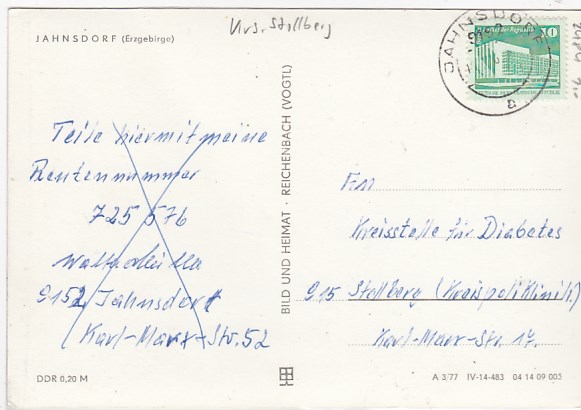 Krs. Stollberg
JAHNSDORF (Erzgebirge)
Teile hiermit meine
Rentennummer
725 576
9152 Jahnsdorf
Karl-Marx-Str. 52
DDR 0,20 M
BILD UND HEIMAT · REICHENBACH (VOGTL)
JAHNSDORF
a
10
An
Kreisstelle für Diabetes
915 Stollberg (Kreispoliklinik)
Karl-Marx-Str. 17.
A 3/77 IV-14-483 04 14 09 005